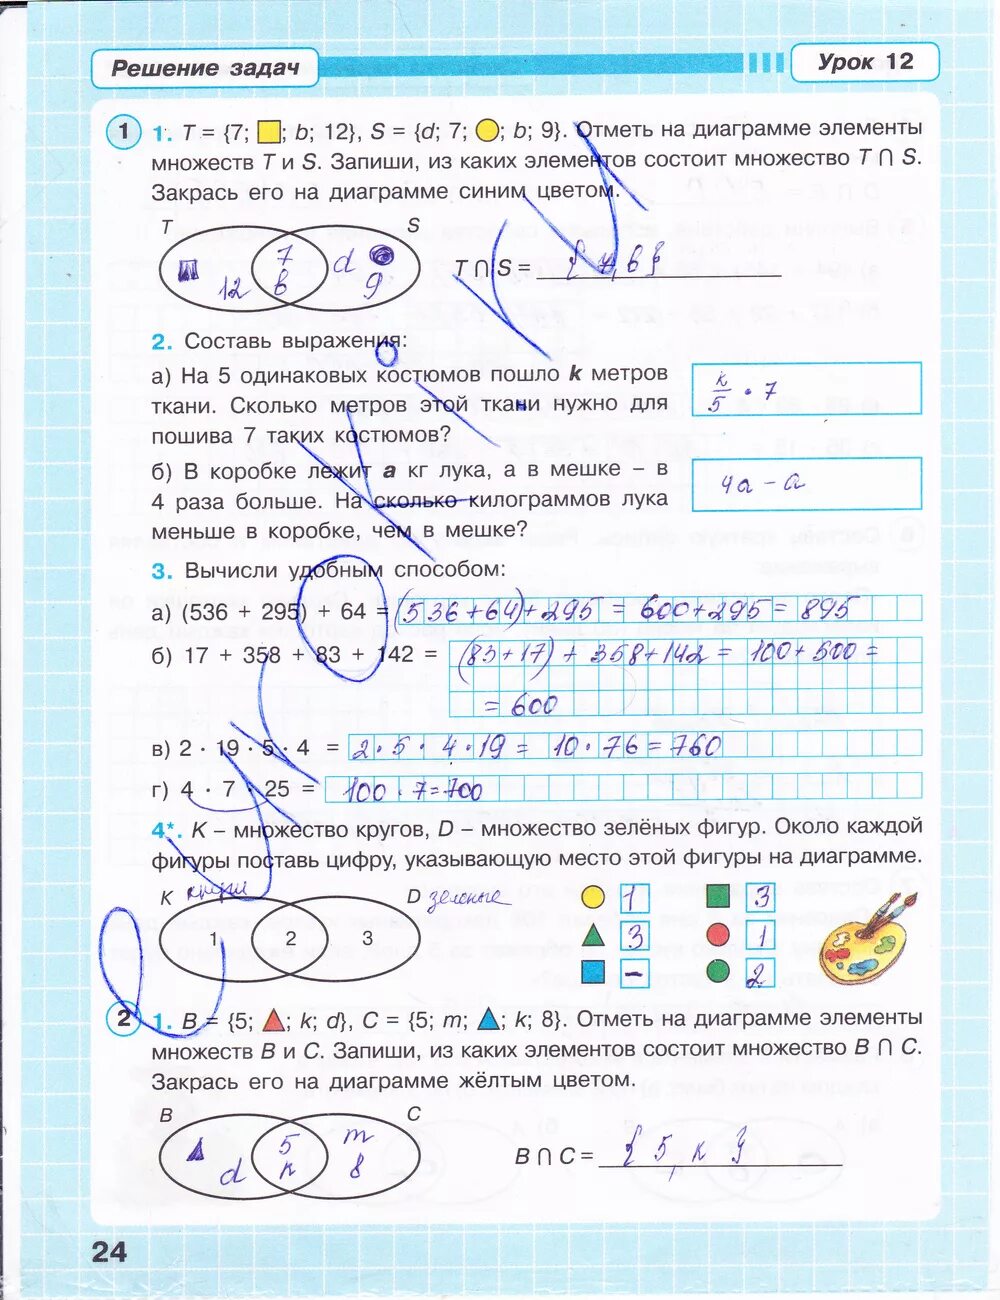 Решение задач
Урок 12
1 1. T = {7; ; b; 12}, S = {d; 7; ; b; 9}. Отметь на диаграмме элементы
множеств T и S. Запиши, из каких элементов состоит множество T ∩ S.
Закрась его на диаграмме синим цветом.
T S
7 d
12 b 9
T ∩ S = { 7 b }
2. Составь выражения:
а) На 5 одинаковых костюмов пошло k метров
ткани. Сколько метров этой ткани нужно для
пошива 7 таких костюмов?
k/5 · 7
б) В коробке лежит a кг лука, а в мешке – в
4 раза больше. На сколько килограммов лука
меньше в коробке, чем в мешке?
4a - a
3. Вычисли удобным способом:
а) (536 + 295) + 64 = (536+64)+295 = 600+295 = 895
б) 17 + 358 + 83 + 142 = (83+17) + 358+142 = 100+500 =
= 600
в) 2 · 19 · 5 · 4 = 2 · 5 · 4 · 19 = 10 · 76 = 760
г) 4 · 7 · 25 = 100 · 7 = 700
4*. K – множество кругов, D – множество зелёных фигур. Около каждой
фигуры поставь цифру, указывающую место этой фигуры на диаграмме.
K круги D зеленые
1 2 3
1 3
3 1
- 2
2 1. B = {5; ; k; d}, C = {5; m; ; k; 8}. Отметь на диаграмме элементы
множеств B и C. Запиши, из каких элементов состоит множество B ∩ C.
Закрась его на диаграмме жёлтым цветом.
B C
5 m
d к 8
B ∩ C = { 5, к }
24